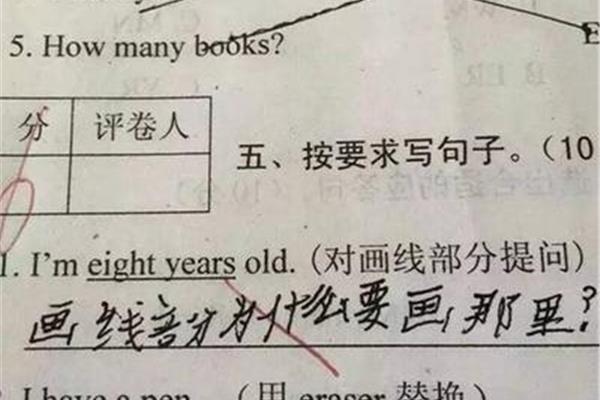 5. How many books?
E
分 评卷人
五、按要求写句子。(10
1. I'm eight years old. (对画线部分提问)
画线部分为什么要画那里?
I have a pen. (用 eraser 替换)